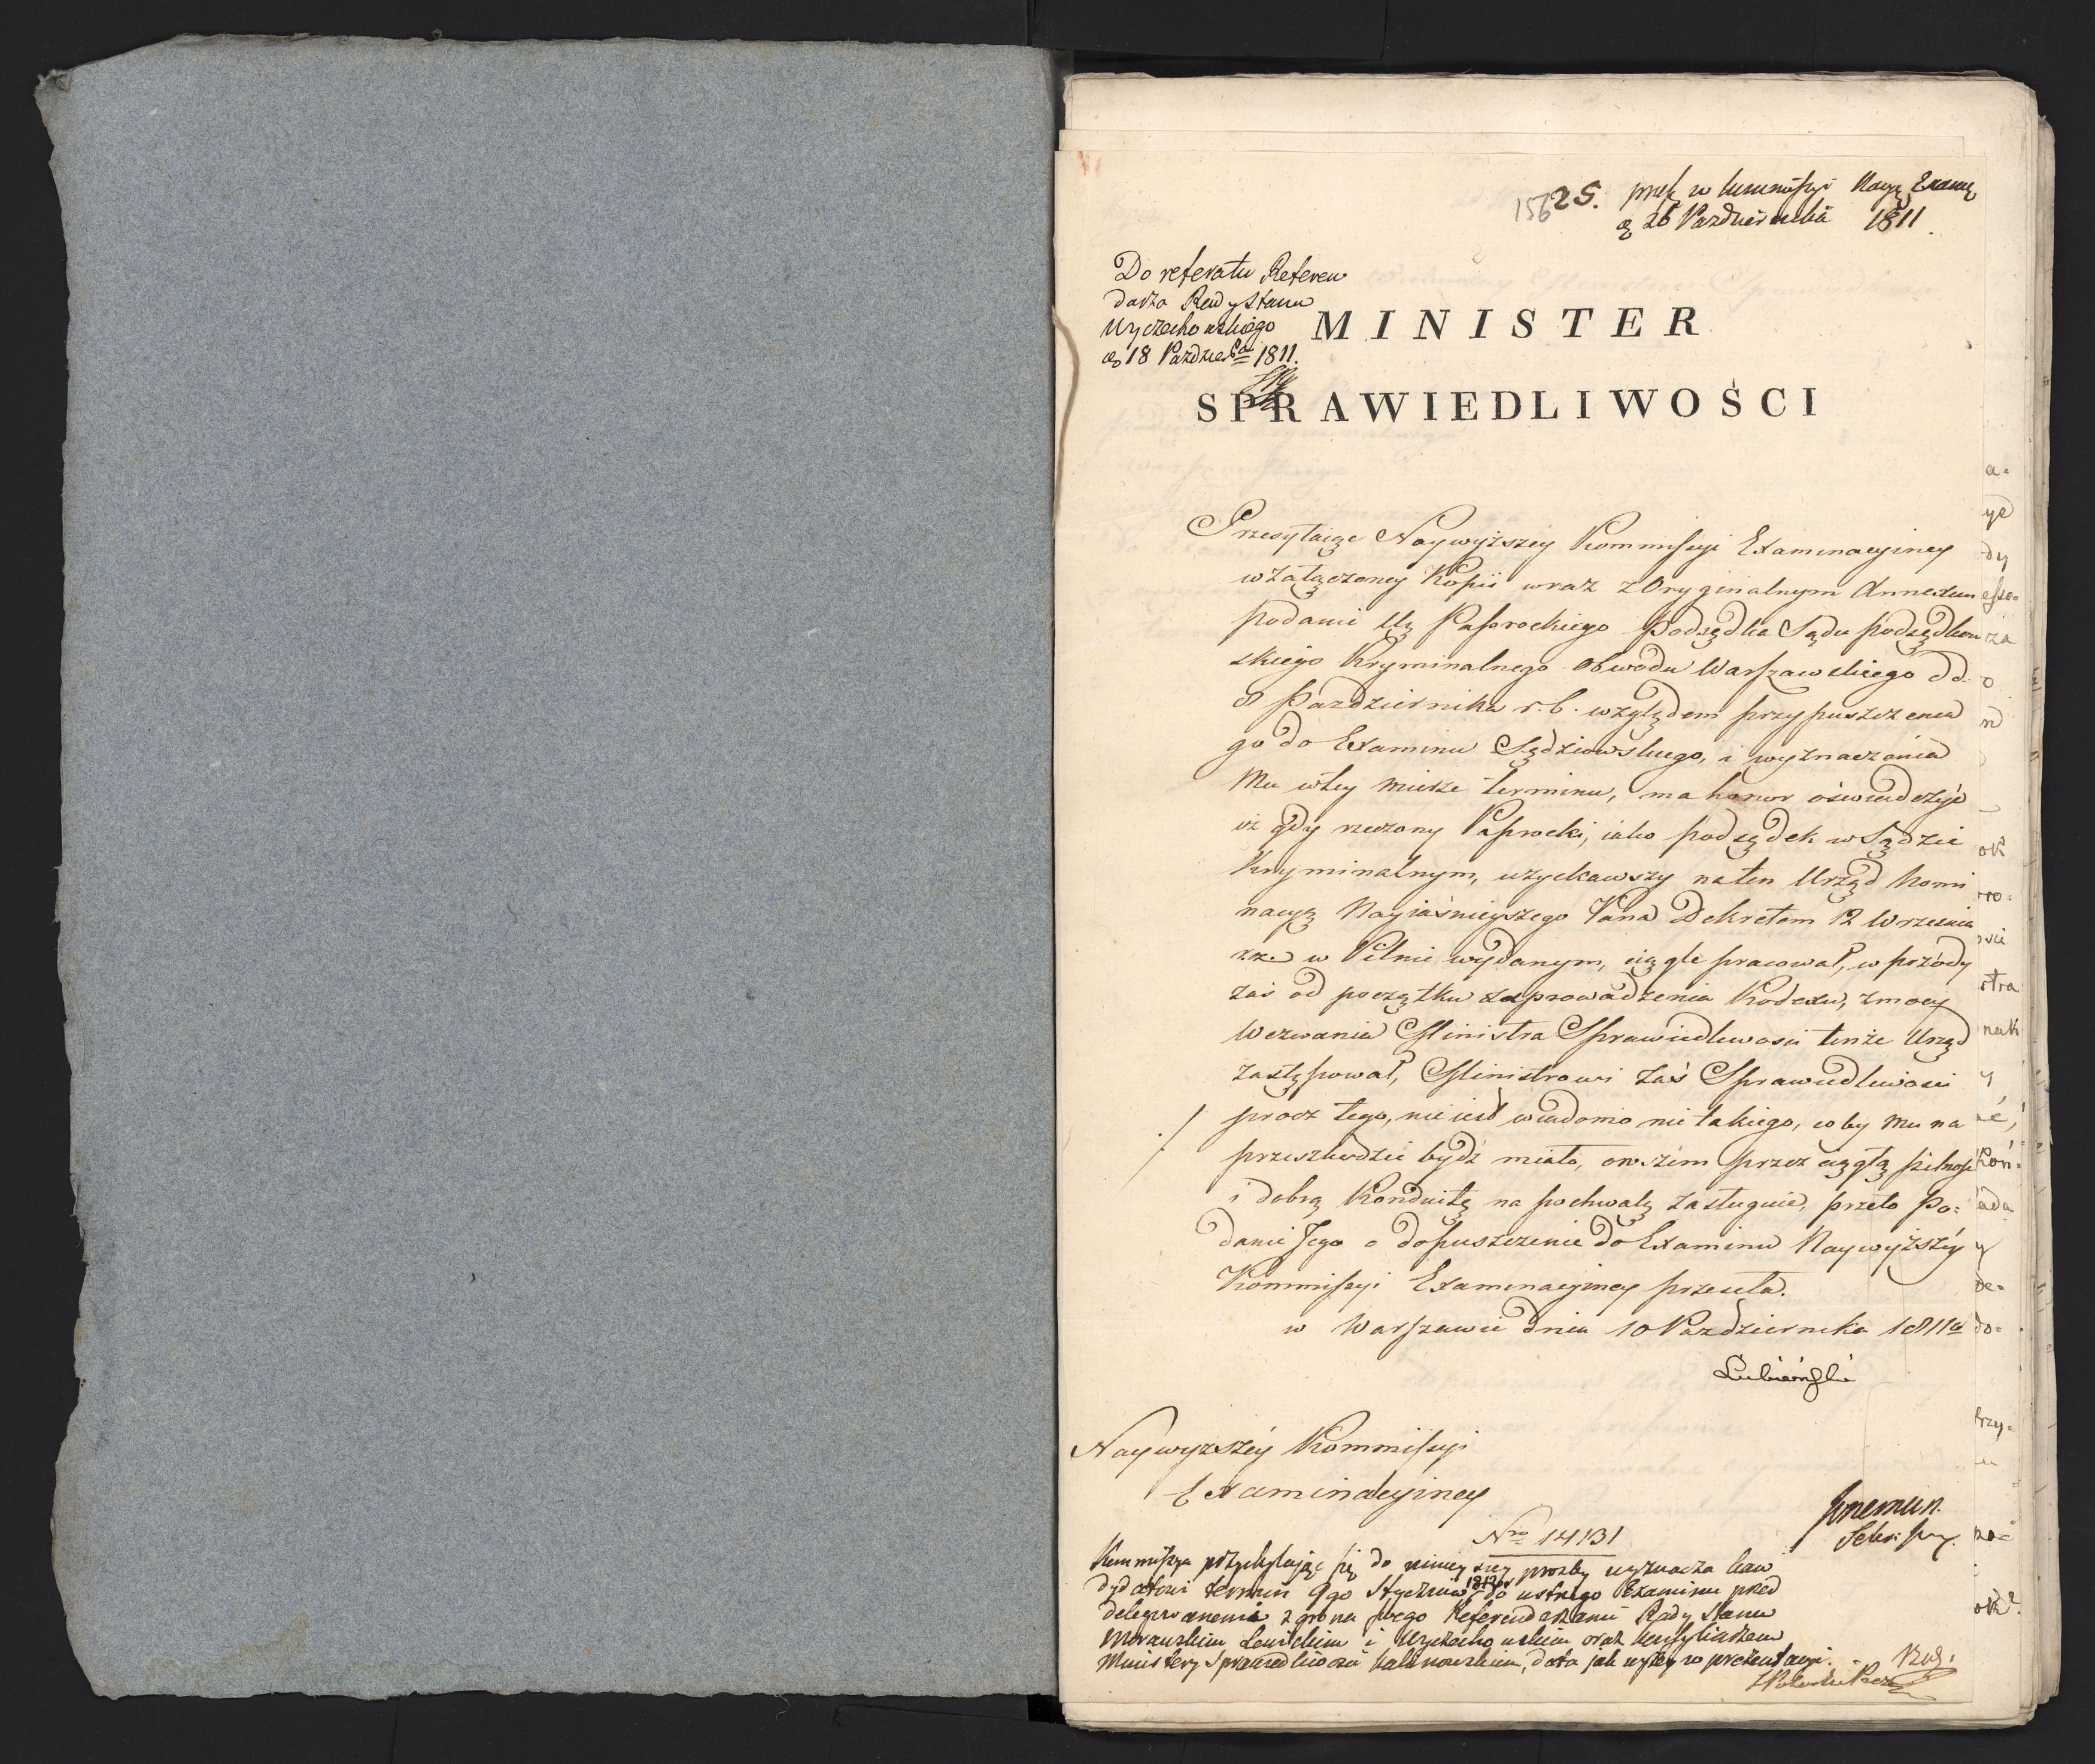 156 25. w Kommissyi Nayw. Exam.
d. 26 Pazdziernika 1811.
Do referatu Referen
darza Rady Stanu
Wyczechowskiego
d. 18 Pazdzier. 1811.
MINISTER
SPRAWIEDLIWOŚCI
Przesyłaiąc Naywyższey Kommissyi Examinacyiney
w załączoney Kopii wraz z Oryginalnym Annexem
podanie Ur. Paprockiego Podsędka Sądu Podsędkow
skiego Kryminalnego Obwodu Warszawskiego dd.
8 Pazdziernika r. b. względem przypuszczenia
go do Examinu Sędziowskiego, i wyznaczenia
Mu w tey mierze terminu, ma honor oświadczyć
iż gdy rzeczony Paprocki, iako podsędek w Sądzie
Kryminalnym, uzyskawszy na ten Urząd Nomi
nacyą Nayiaśnieyszego Pana Dekretem 12 Września
w Pilnie wydanym, ciągle pracował, w przódy
zaś od początku zaprowadzenia Kodexu, z mocy
Wezwania Ministra Sprawiedliwości tenże Urząd
zastępował, Ministrowi zaś Sprawiedliwości
procz tego, nie iest wiadomo nic takiego, coby Mu na
przeszkodzie bydź miało, owszem przez ciągłą pilność
i dobrą Konduitę na pochwałę zasługuie, przeto Po=
danie Jego o dopuszczenie do Examinu Naywyższey
Kommissyi Examinacyiney przeseła.
w Warszawie dnia 10 Pazdziernika 1811 o
Łubieński
Naywyzszéy Kommissyi
Examinacyiney
Nro 14131
Sekr:
Kommissya przychylając się do ninieyszey prozby wyznacza kan
dydatowi termin 9go Stycznia 1812 do ustnego Examinu przed
delegowanemi z grona swego Referendarzami Rady Stanu
Morawskim Lewickim i Wyczechowskim oraz
Ministery Sprawiedliwości Kalinowskim, data jak wyżey w prezentacyi.